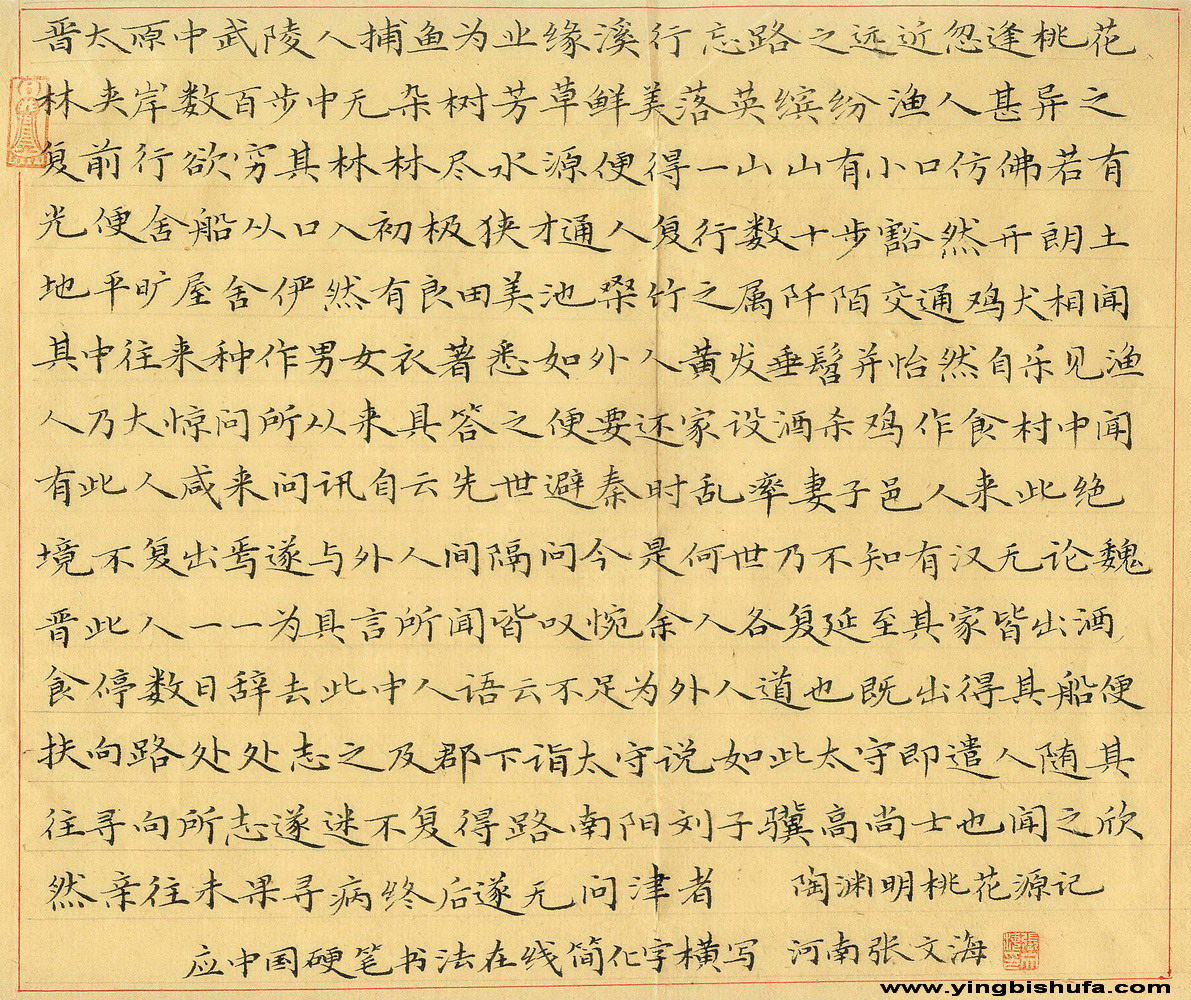 晋太原中武陵人捕鱼为业缘溪行忘路之远近忽逢桃花
林夹岸数百步中无杂树芳草鲜美落英缤纷渔人甚异之
复前行欲穷其林林尽水源便得一山山有小口仿佛若有
光便舍船从口入初极狭才通人复行数十步豁然开朗土
地平旷屋舍俨然有良田美池桑竹之属阡陌交通鸡犬相闻
其中往来种作男女衣著悉如外人黄发垂髫并怡然自乐见渔
人乃大惊问所从来具答之便要还家设酒杀鸡作食村中闻
有此人咸来问讯自云先世避秦时乱率妻子邑人来此绝
境不复出焉遂与外人间隔问今是何世乃不知有汉无论魏
晋此人一一为具言所闻皆叹惋余人各复延至其家皆出酒
食停数日辞去此中人语云不足为外人道也既出得其船便
扶向路处处志之及郡下诣太守说如此太守即遣人随其
往寻向所志遂迷不复得路南阳刘子骥高尚士也闻之欣
然亲往未果寻病终后遂无问津者 陶渊明桃花源记
应中国硬笔书法在线简化字横写 河南张文海
www.yingbishufa.com